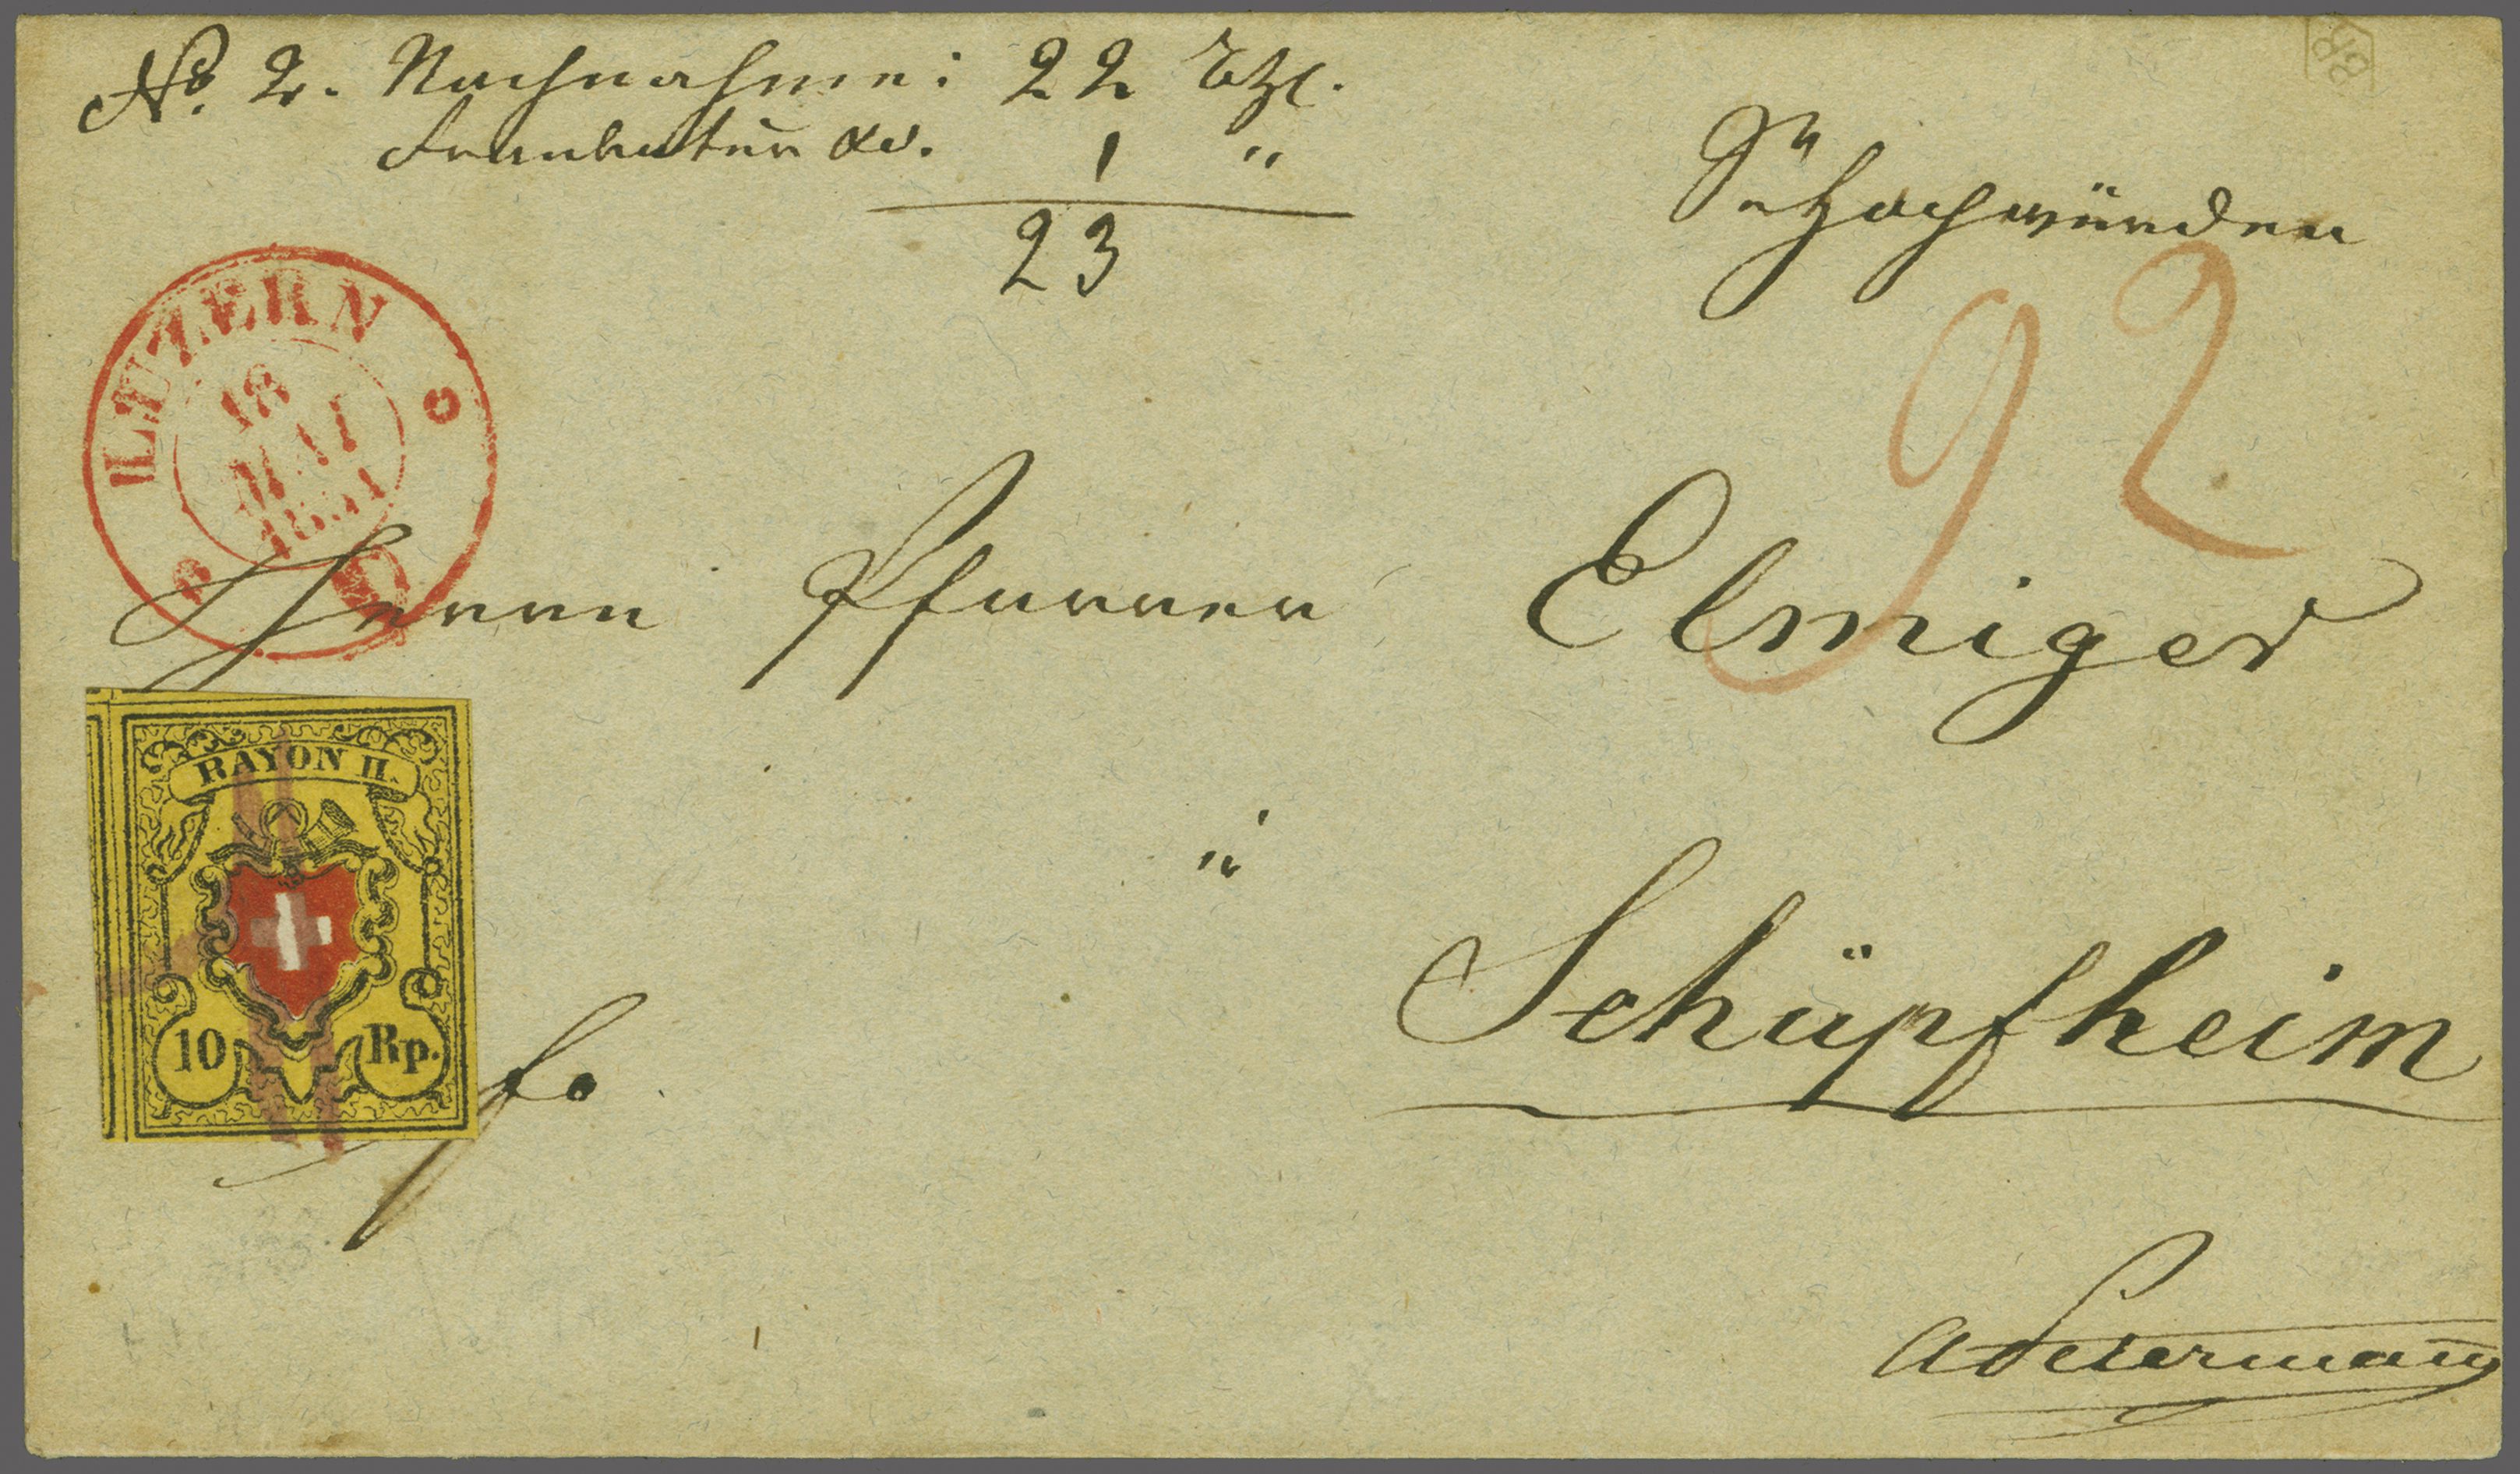 No. 2. Nachnahme: 22 Btz.
Frankatur &c. 1 "
23
Sr Hochwürden
92
LUZERN
18
MAI
1851
Herrn Pfarrer Elmiger
RAYON II.
in
Schüpfheim
10 Rp.
fo